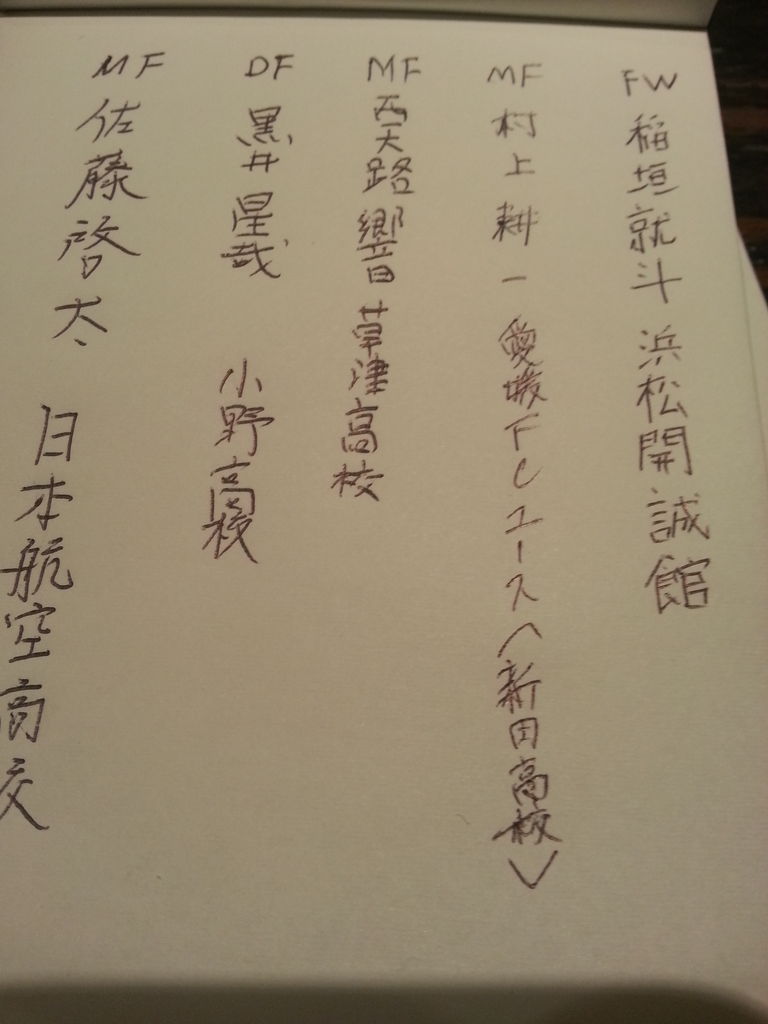 FW 稲垣就斗 浜松開誠館
MF 村上耕一 愛媛FCユース(新田高校)
MF 西天路響 草津高校
DF 黒井星哉 小野高校
MF 佐藤啓太 日本航空高校